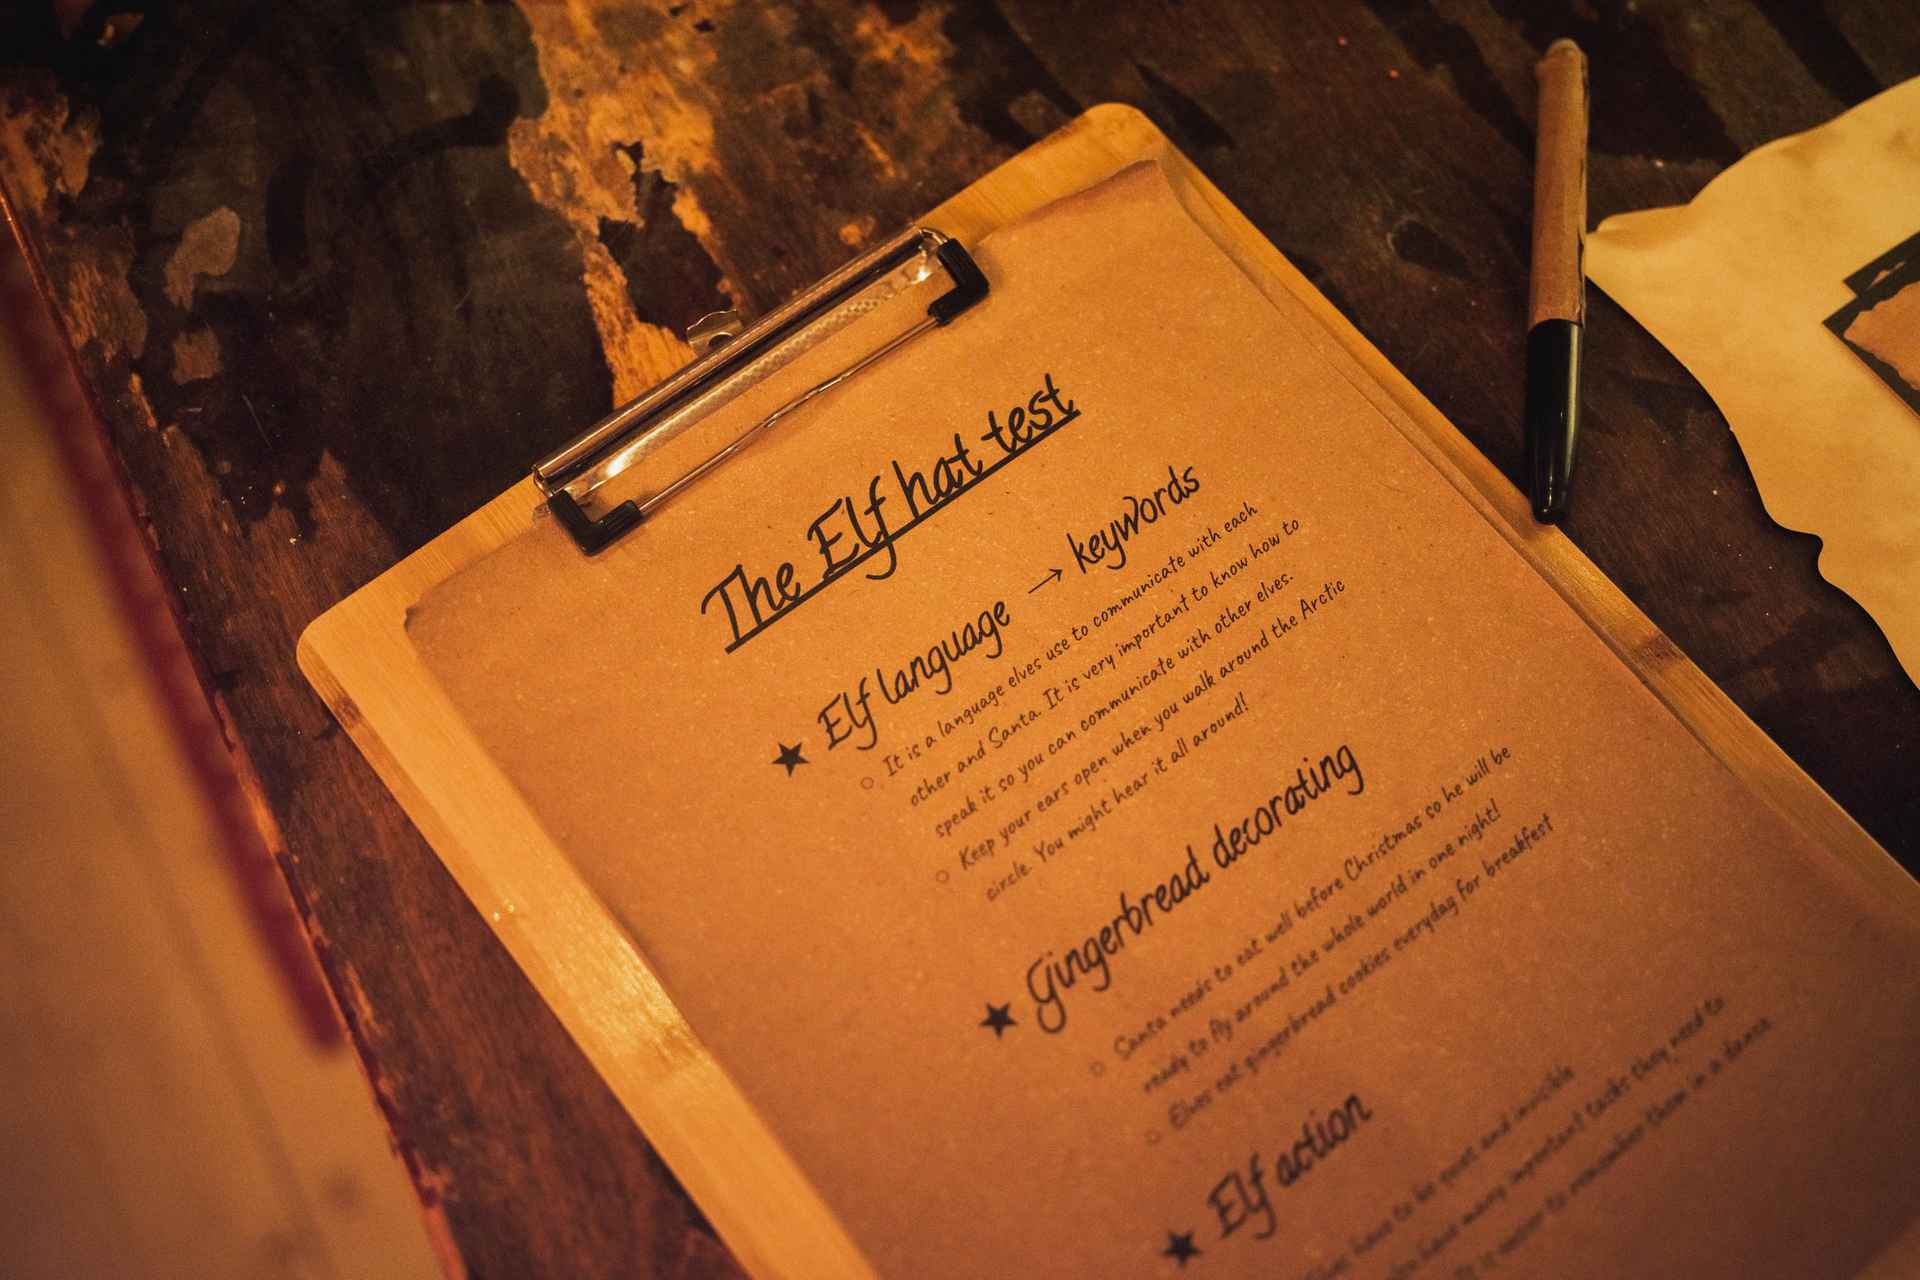 The Elf hat test
★ Elf language → keywords
○ It is a language elves use to communicate with each
other and Santa. It is very important to know how to
speak it so you can communicate with other elves.
○ Keep your ears open when you walk around the Arctic
circle. You might hear it all around!
★ Gingerbread decorating
○ Santa needs to eat well before Christmas so he will be
ready to fly around the whole world in one night!
○ Elves eat gingerbread cookies everyday for breakfest
★ Elf action
have to be quiet and invisible
have many important tasks they need to
is easier to remember them in a dance